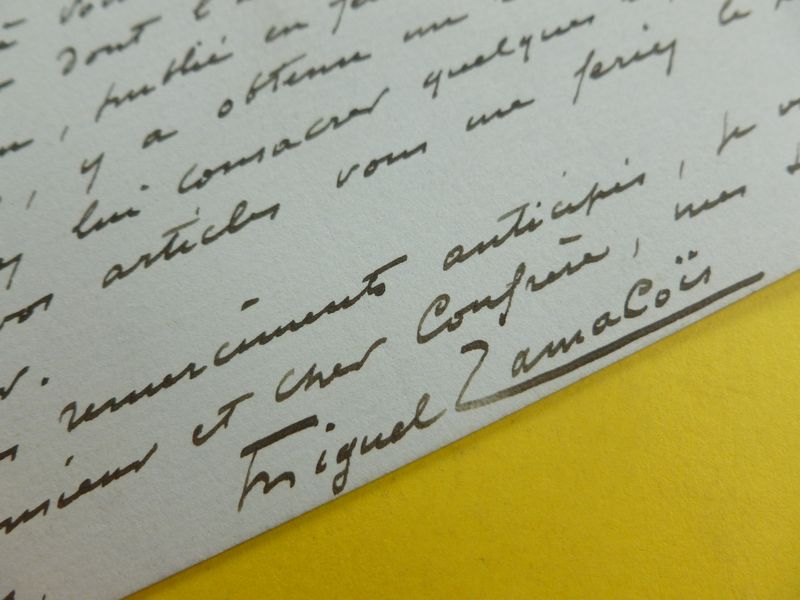 à vou
dont l'
, publié en
, y a obtenu un
lui consacrer quelques
vos articles vous me feriez le
r.
remerciements anticipés, je v
nsieur et cher Confrère, mes
Miguel Zamacoïs